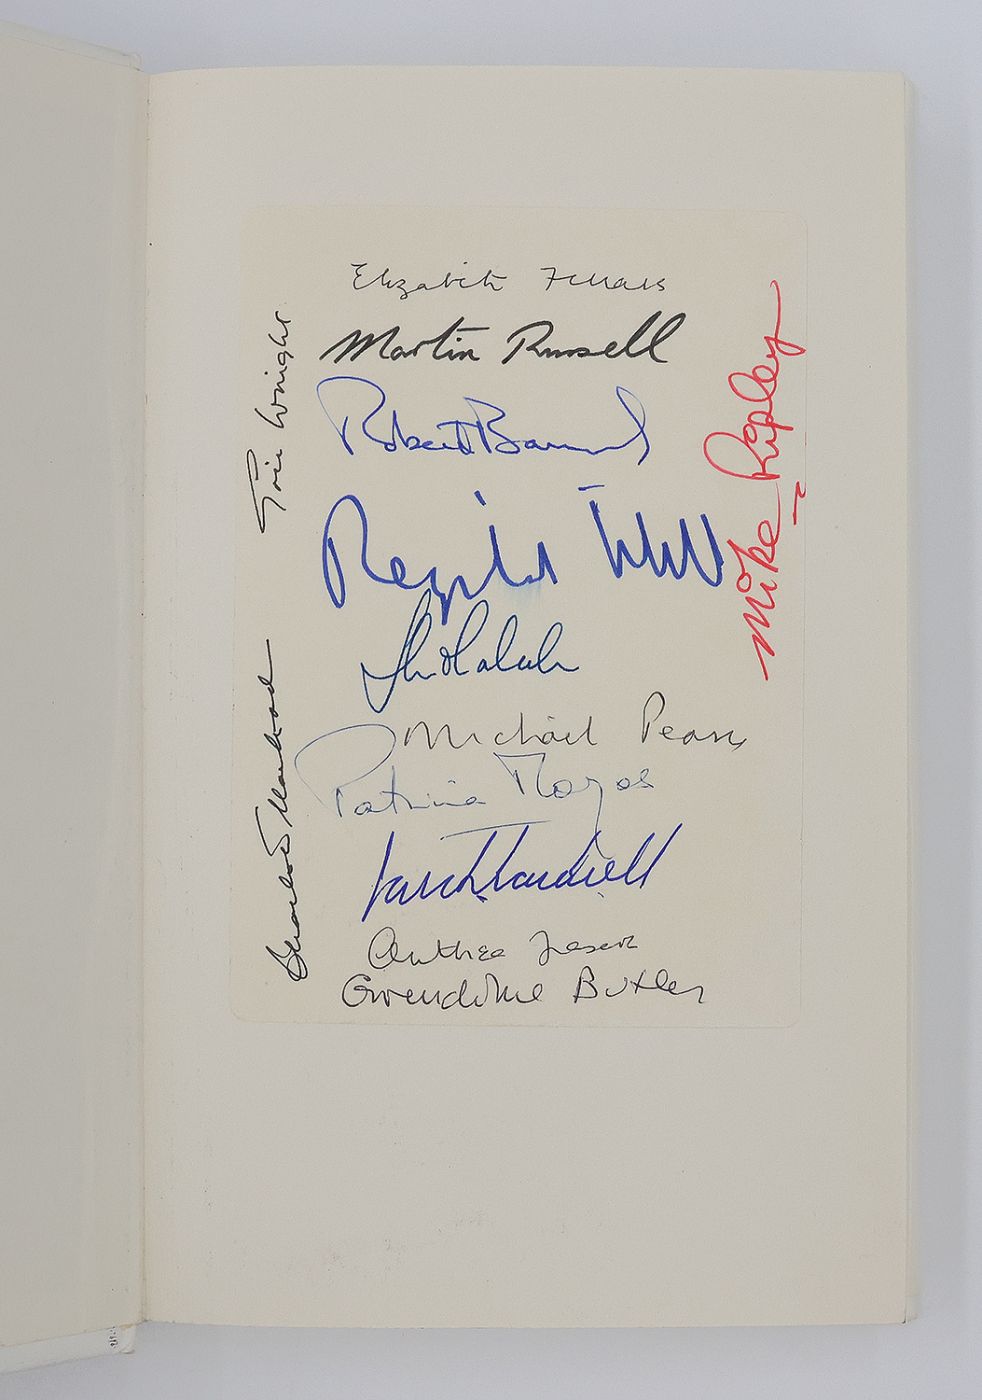 Elizabeth Ferrars
Martin Russell
Robert Barnard
Reginald Hill
Michael Pearce
Patricia Moyes
Anthea Fraser
Gwendoline Butler
Eric Wright
Charlotte MacLeod
Mike Ripley